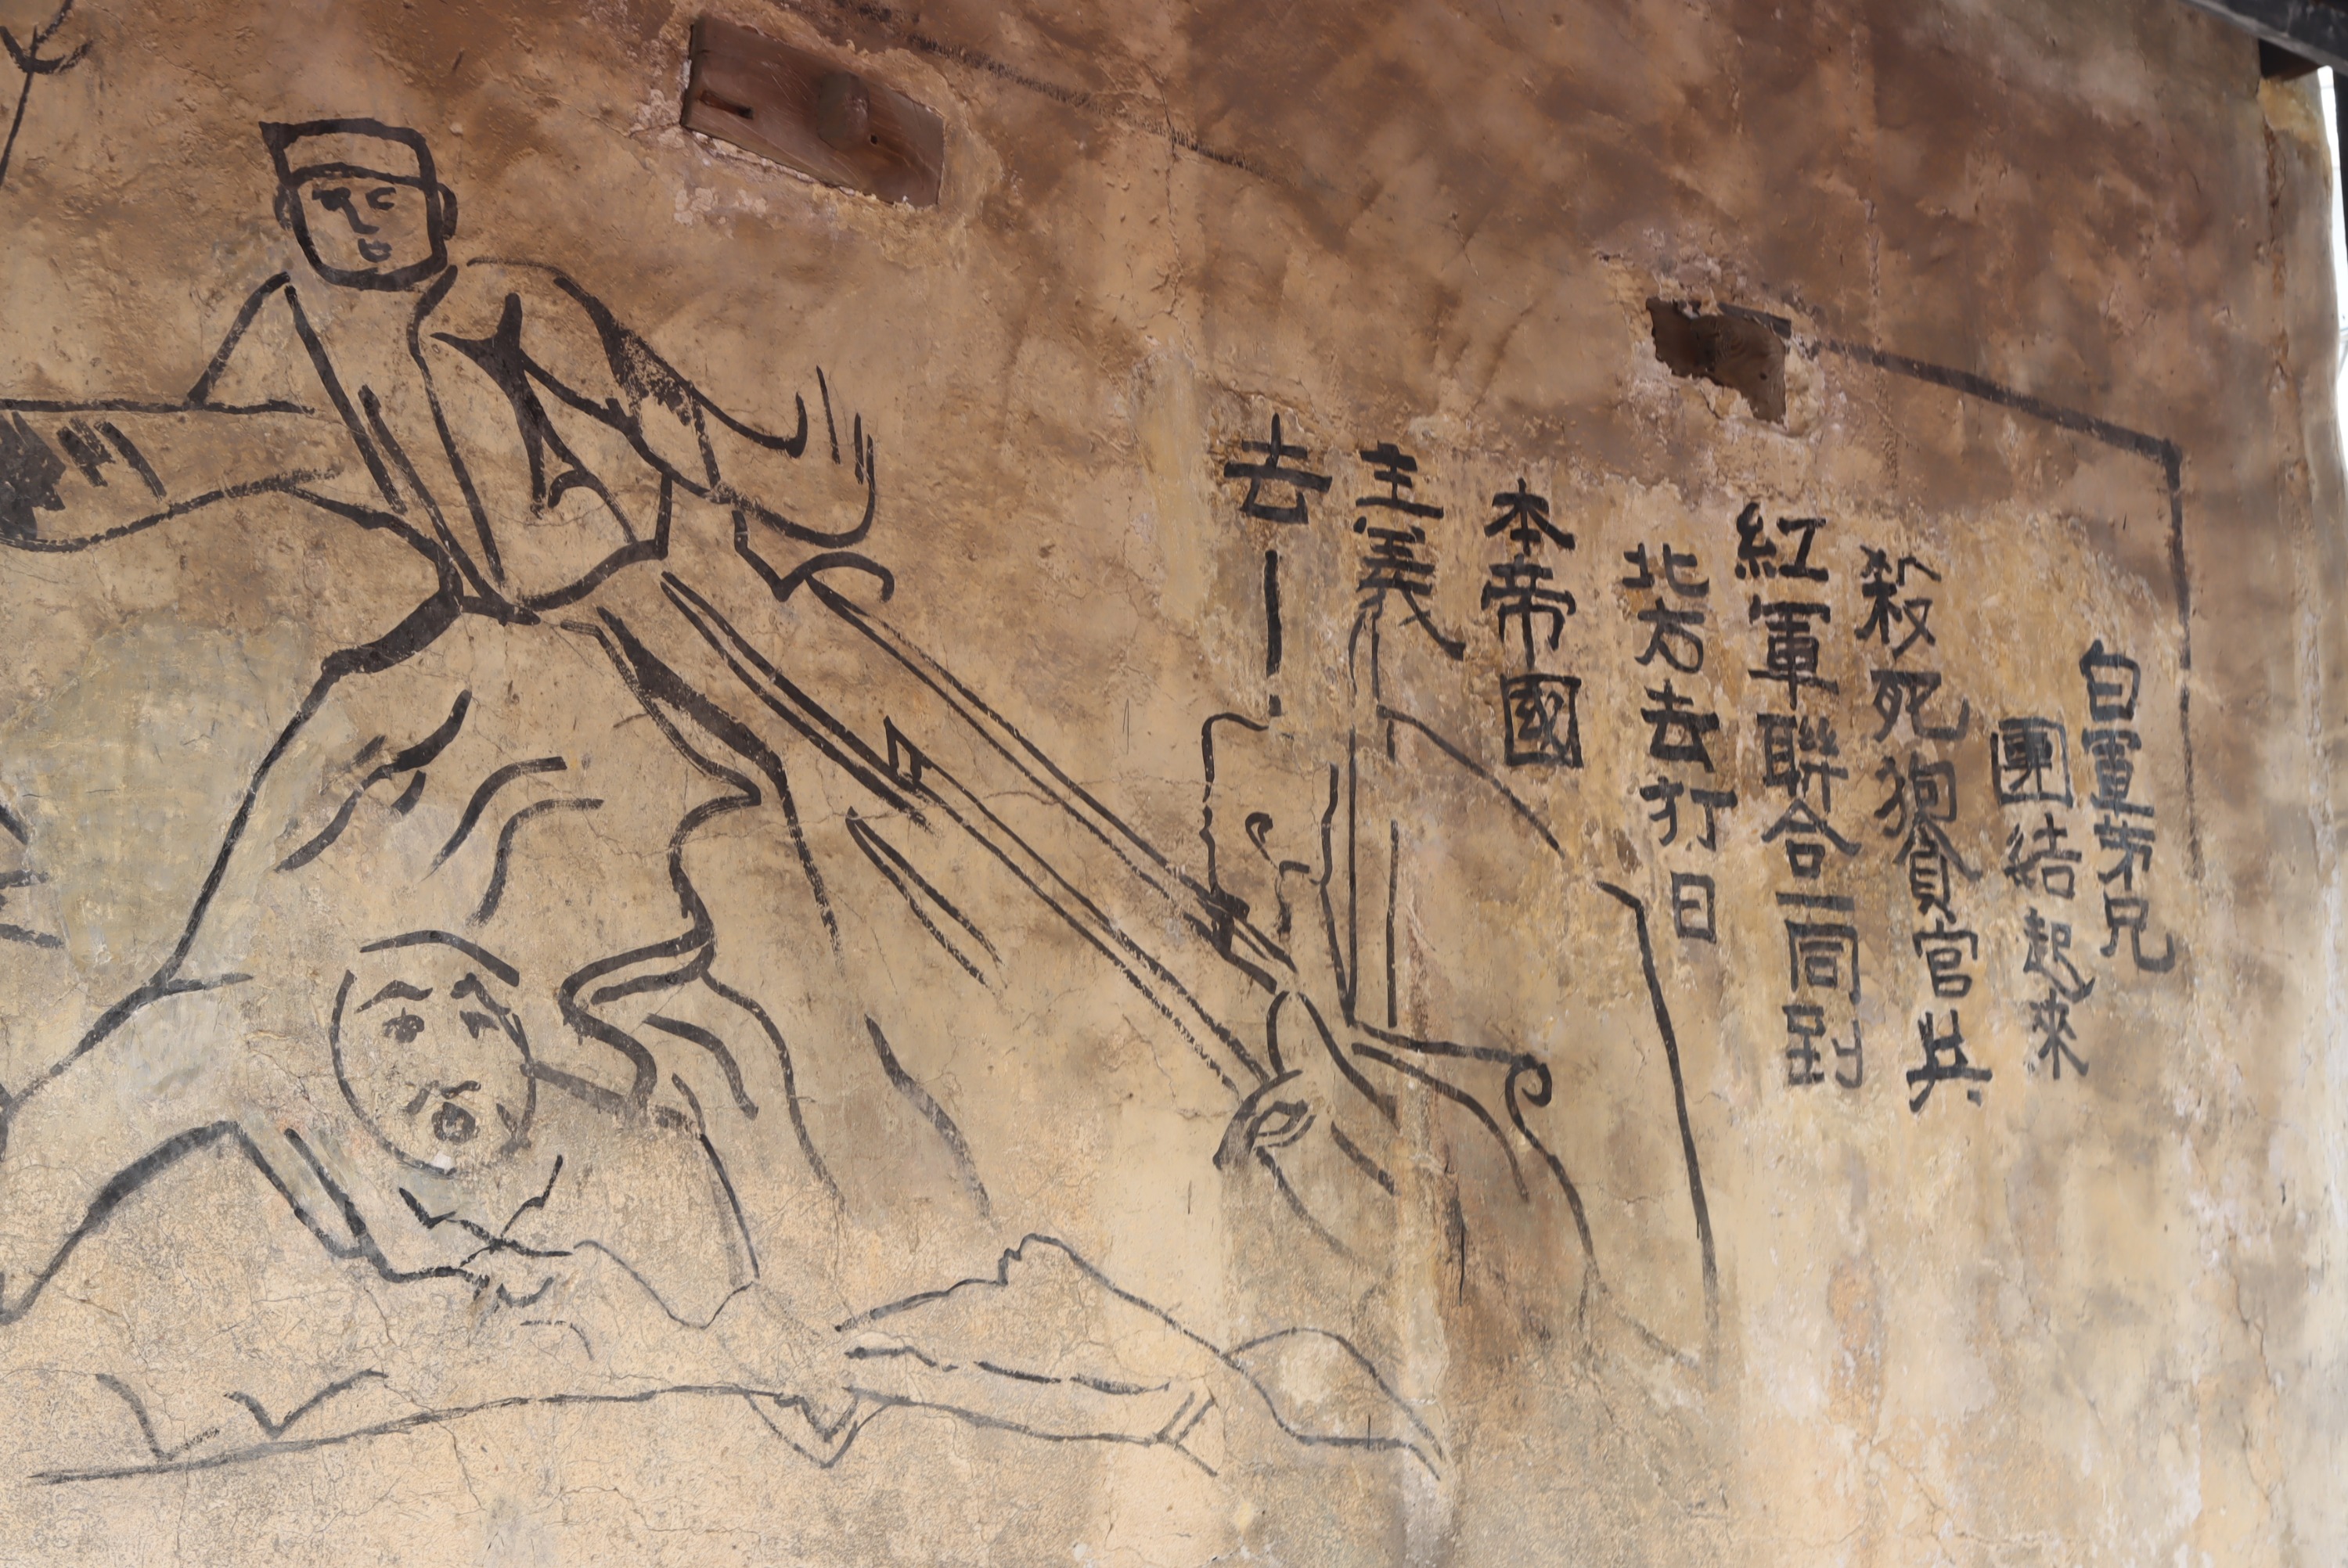 白軍弟兄
團結起來
殺死狗貪官共
紅軍聯合一同到
北方去打日
本帝國
主義
去!